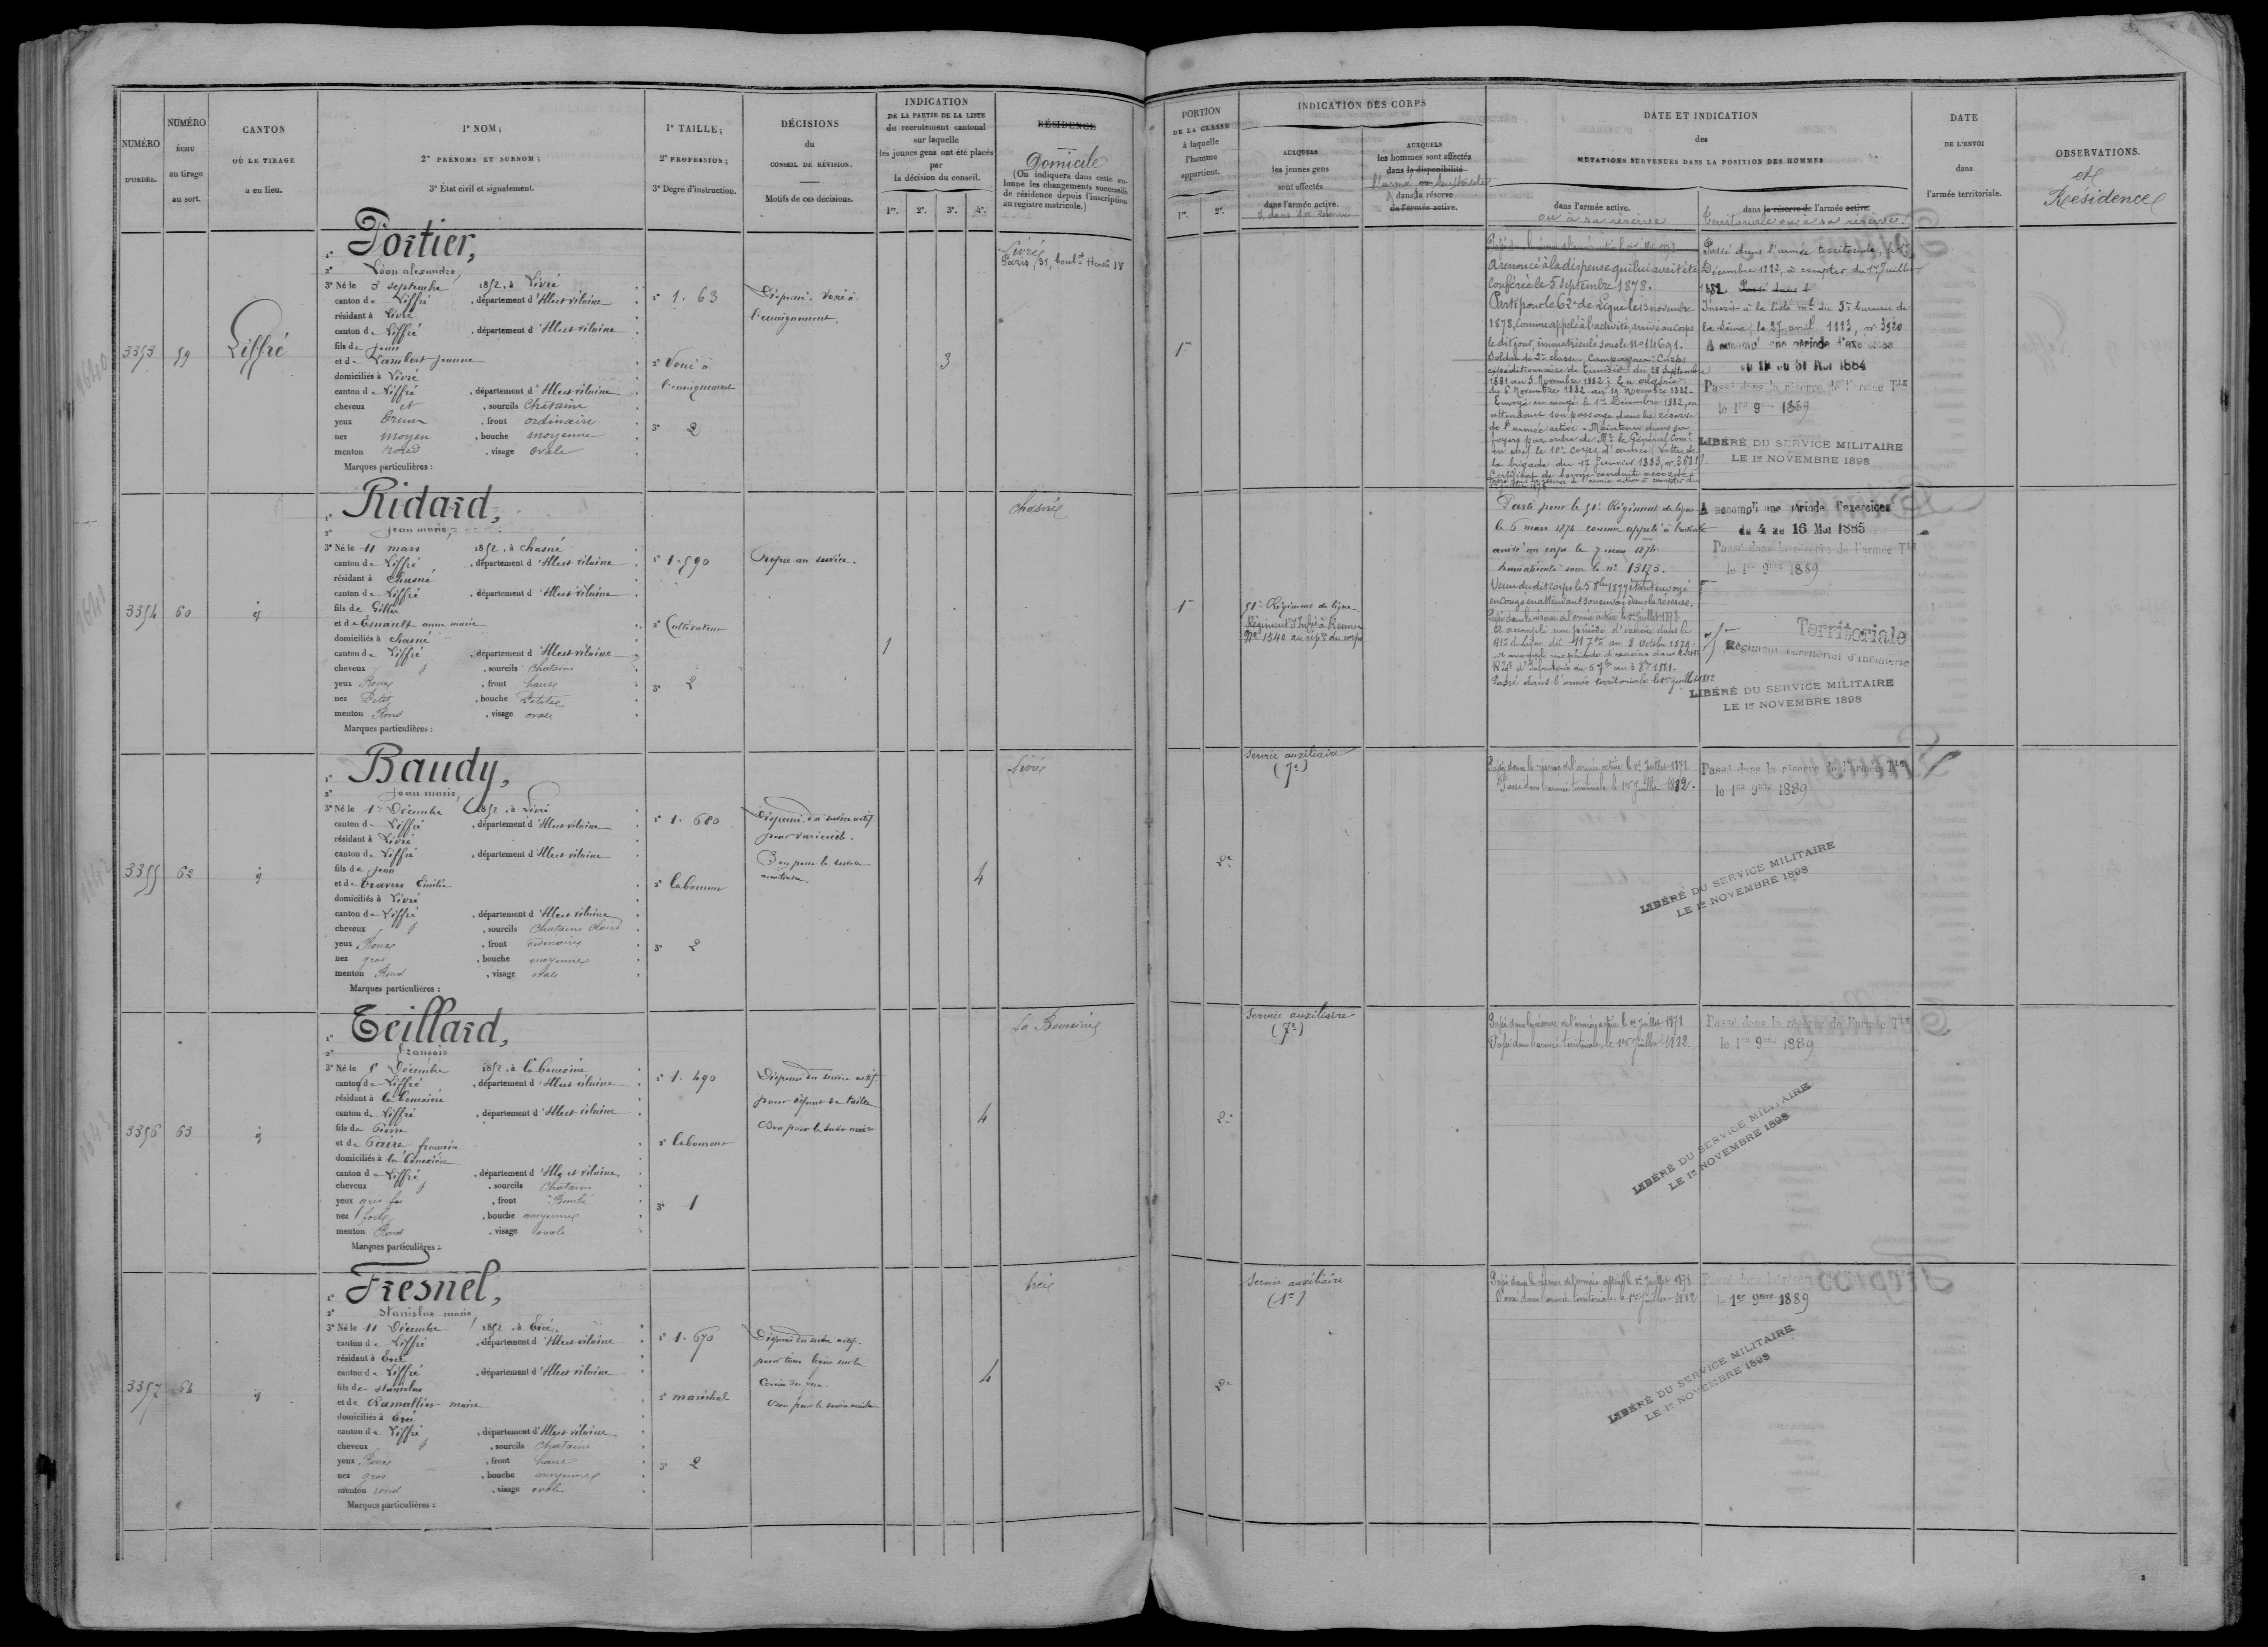 NUMÉRO
D'ORDRE.
NUMÉRO
ÉCHU
au tirage
au sort.
CANTON
OÙ LE TIRAGE
a eu lieu.
1º NOM;
2º PRÉNOMS ET SURNOM;
3º État civil et signalement.
1º TAILLE;
2º PROFESSION;
3º Degré d'instruction.
DÉCISIONS
du
CONSEIL DE RÉVISION.
Motifs de ces décisions.
INDICATION
DE LA PARTIE DE LA LISTE
du recrutement cantonal
sur laquelle
les jeunes gens ont été placés
par
la décision du conseil.
1re. 2e. 3e. 4e.
RÉSIDENCE
Domicile
(On indiquera dans cette co-
lonne les changements successifs
de résidence depuis l'inscription
au registre matricule.)
PORTION
DE LA CLASSE
à laquelle
l'homme
appartient.
1re. 2e.
INDICATION DES CORPS
AUXQUELS
les jeunes gens
sont affectés
dans l'armée active.
& dans sa réserve
AUXQUELS
les hommes sont affectés
dans la disponibilité
l'armée territoriale
dans la réserve
de l'armée active.
DATE ET INDICATION
des
MUTATIONS SURVENUES DANS LA POSITION DES HOMMES
dans l'armée active.
ou à sa réserve
dans la réserve de l'armée active.
Territoriale ou à sa réserve.
DATE
DE L'ENVOI
dans
l'armée territoriale.
OBSERVATIONS.
et
Résidence
3353
59
Liffré
1º Portier,
2º Léon alexandre,
3º Né le 5 septembre 1852, à Livré
canton de Liffré, département d'Ille et vilaine
résidant à Livré
canton de Liffré, département d'Ille et vilaine
fils de jean
et de Lambert jeanne
domiciliés à Livré
canton de Liffré, département d'Ille et vilaine
cheveux et, sourcils Châtain
yeux Bruns, front ordinaire
nez moyen, bouche moyenne
menton rond, visage ovale
Marques particulières :
1º 1. 63
2º Voué à
l'enseignement
3º 2
Dispensé. Voué à
l'enseignement.
3
Livré
Paris, 31, boul.d Henri IV
1re
A renoncé à la dispense qui lui avait été
conférée le 5 septembre 1878.
Parti pour le 62e de Ligne le 13 novembre
1878, comme appelé à l'activité, arrivé au corps
le dit jour, immatriculé sous le No 14691.
Soldat de 2e classe. Campagnes: Corps
expéditionnaire de Tunisie: du 28 Septembre
1881 au 5 Novembre 1882; En algérie
du 6 Novembre 1882 au 19 Novembre 1882.
Envoyé en congé le 1er Décembre 1882, en
attendant son passage dans la réserve
de l'armée active. Maintenu dans ses
foyers par ordre de Mr le Général Comt
en chef le 10e corps d'armée (Lettre de
la brigade du 17 Janvier 1883, no 3681).
Certificat de bonne conduite accordé.
Passé dans l'armée territoriale, le 1er
Décembre 1882, à compter du 1er Juillet
1882.
Inscrit à la liste mle du 5e bureau de
la Seine, le 27 avril 1883, no 3920
A accompli une période d'exercices
du 19 au 31 Mai 1884
Passé dans la réserve de l'armée Tle
le 1er 9bre 1889
LIBÉRÉ DU SERVICE MILITAIRE
LE 1er NOVEMBRE 1898
3354
60
id
1º Ridard,
2º jean marie,
3º Né le 11 mars 1852, à chasné
canton de Liffré, département d'Ille et vilaine
résidant à Chasné
canton de Liffré, département d'Ille et vilaine
fils de Gilles
et de Esnault anne marie
domiciliés à chasné
canton de Liffré, département d'Ille et vilaine
cheveux, sourcils Chatains
yeux Roux, front haut
nez Petit, bouche Petite
menton Rond, visage ovale
Marques particulières :
1º 1.590
2º Cultivateur
3º 2
Propre au service.
1
chasné
1re
51e Régiment de ligne.
Régiment d'Infie à Rennes
No 1540 au répre du corps
Parti pour le 51e Régiment de ligne
le 6 mars 1874 comme appelé à l'activité
arrivé au corps le 7 mars 1874
immatriculé sous le no 13173.
en congé en attendant son envoi dans la réserve.
Passé dans la réserve de l'armée active le 1er Juillet 1878
A accompli une période d'exercices dans le
41e de Ligne du 11 7bre au 8 Octobre 1879.
Passé dans l'armée territoriale le 1er Juillet 1882
A accompli une période d'exercices
du 4 au 16 Mai 1885
Passé dans la réserve de l'armée Tle
le 1er 9bre 1889
Territoriale
Régiment Territorial d'Infanterie
LIBÉRÉ DU SERVICE MILITAIRE
LE 1er NOVEMBRE 1898
3355
62
id
1º Baudy,
2º jean marie,
3º Né le 1er Décembre 1852, à Livré
canton de Liffré, département d'Ille et vilaine
résidant à Livré
canton de Liffré, département d'Ille et vilaine
fils de jean
et de Travers Emilie
domiciliés à Livré
canton de Liffré, département d'Ille et vilaine
cheveux, sourcils Chatains clairs
yeux Roux, front ordinaire
nez gros, bouche moyenne
menton Rond, visage ovale
Marques particulières :
1º 1. 680
2º laboureur
3º 2
Dispensé du service actif
pour varicocèle.
Bon pour le service
auxiliaire.
4
Livré
2e
Service auxiliaire
(7e)
Passé dans la réserve de l'armée active le 1er Juillet 1878
Passé dans l'armée territoriale le 1er Juillet 1882.
Passé dans la réserve de l'armée Tle
le 1er 9bre 1889
LIBÉRÉ DU SERVICE MILITAIRE
LE 1er NOVEMBRE 1898
3356
63
id
1º Teillard,
2º François
3º Né le 8 Décembre 1852, à la bouexière
canton de Liffré, département d'Ille et vilaine
résidant à la bouexière
canton de Liffré, département d'Ille et vilaine
fils de Pierre
et de Paire françoise
domiciliés à la bouexière
canton de Liffré, département d'Ille et vilaine
cheveux, sourcils Chatains
yeux gris, front Bombé
nez fort, bouche moyenne
menton Rond, visage ovale
Marques particulières :
1º 1. 490
2º laboureur
3º 1
Dispensé du service actif
pour défaut de taille
4
La Bouexière
2e
Service auxiliaire
(7e)
Passé dans la réserve de l'armée active le 1er Juillet 1878
Passé dans l'armée territoriale, le 1er Juillet 1882.
Passé dans la réserve de l'armée Tle
le 1er 9bre 1889
LIBÉRÉ DU SERVICE MILITAIRE
LE 1er NOVEMBRE 1898
3357
64
id
1º Fresnel,
2º Stanislas marie
3º Né le 11 Décembre 1852, à Ercé
canton de Liffré, département d'Ille et vilaine
résidant à Ercé
canton de Liffré, département d'Ille et vilaine
fils de stanislas
domiciliés à Ercé
canton de Liffré, département d'Ille et vilaine
cheveux, sourcils Chatains
yeux Roux, front haut
nez gros, bouche moyenne
menton rond, visage ovale
Marques particulières :
1º 1. 670
2º maréchal
3º 2
Dispensé du service actif
4
2e
Service auxiliaire
(1re)
Passé dans la réserve de l'armée active le 1er Juillet 1878
Passé dans l'armée territoriale le 1er Juillet 1882
le 1er 9bre 1889
LIBÉRÉ DU SERVICE MILITAIRE
LE 1er NOVEMBRE 1898